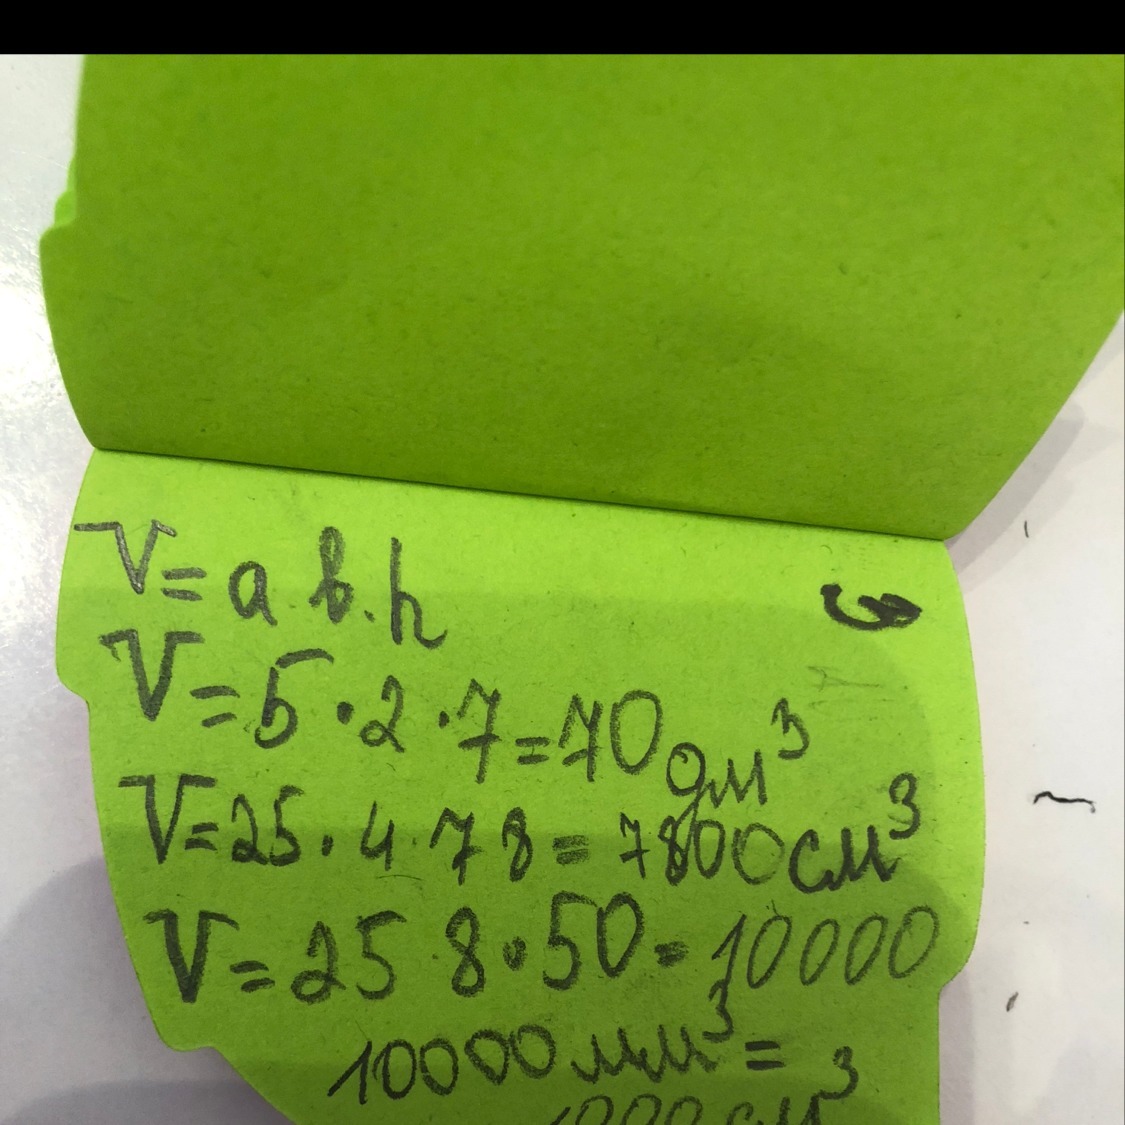 V = a · b · h
V = 5 · 2 · 7 = 70 дм³
V = 25 · 4 · 78 = 7800 см³
V = 25 · 8 · 50 = 10000
10000 мм³ =
1000 см³